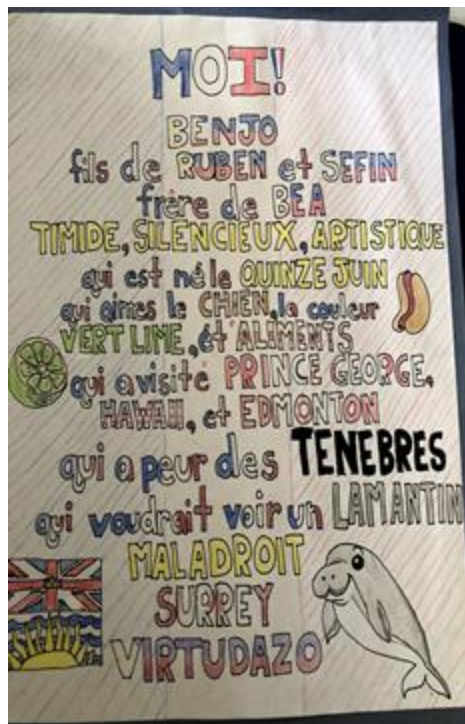 MOI!
BENJO
fils de RUBEN et SEFIN
frère de BEA
TIMIDE, SILENCIEUX, ARTISTIQUE
qui est né le QUINZE JUIN
qui aimes le CHIEN, la couleur
VERT LIME, ét ALIMENTS
qui a visité PRINCE GEORGE,
HAWAII, et EDMONTON
qui a peur des TENEBRES
qui voudrait voir un LAMANTIN
MALADROIT
SURREY
VIRTUDAZO